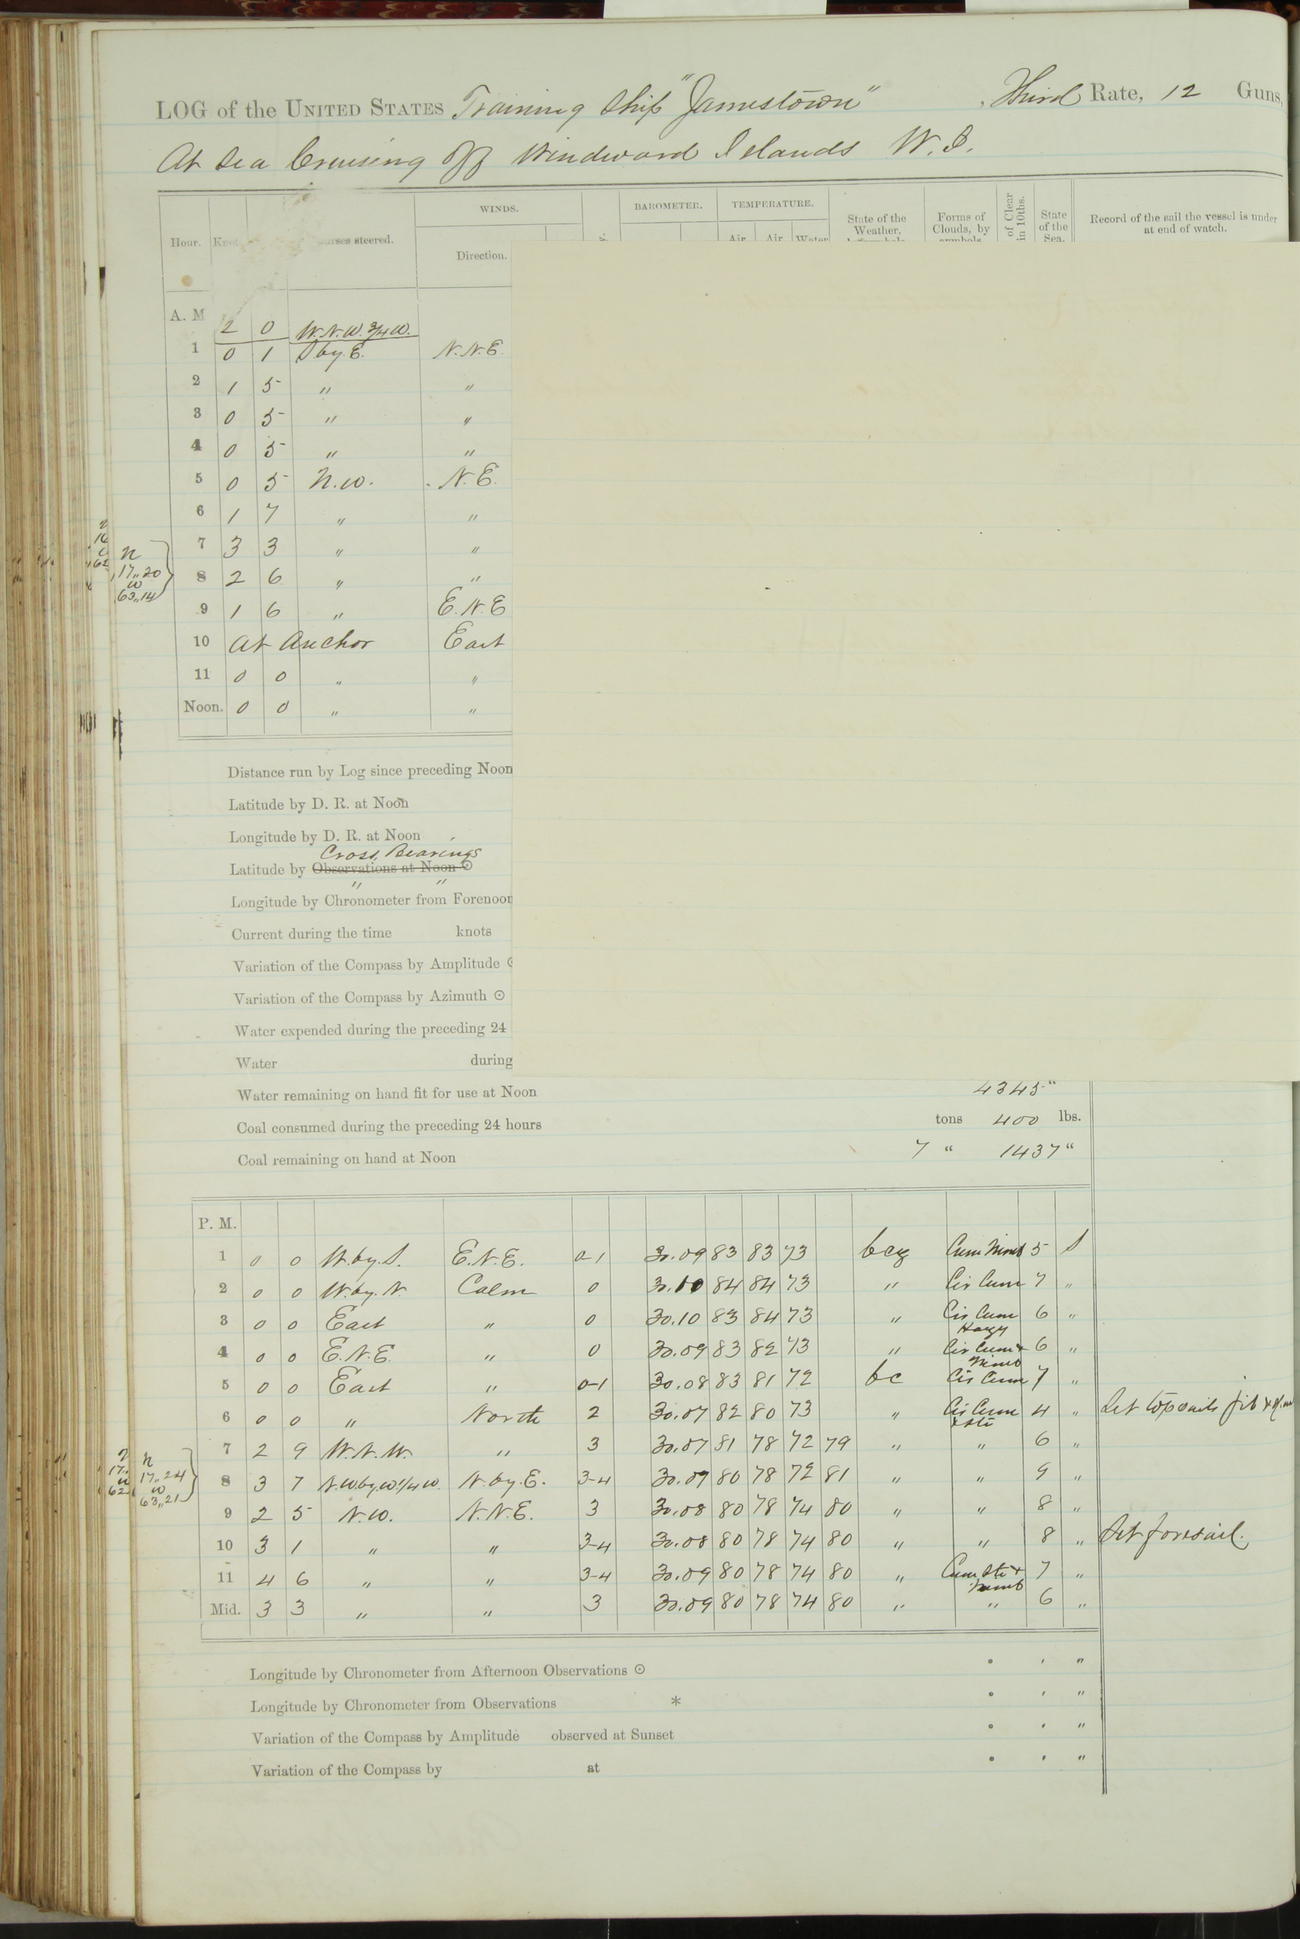 LOG of the UNITED STATES Training Ship "Jamestown", Third Rate, 12 Guns,
At Sea Cruising off Windward Islands W. I.
WINDS. BAROMETER. TEMPERATURE.
Hour. Courses steered. Direction. Air Air Water State of the Weather, Forms of Clouds, by of Clear in 10ths. State of the Sea. Record of the sail the vessel is under at end of watch.
A. M
2 0 W.N.W. 3/4 W.
1 0 1 S by E. N.N.E.
2 1 5 " "
3 0 5 " "
4 0 5 " "
5 0 5 N.W. N.E.
6 1 7 " "
7 3 3 " "
8 2 6 " "
N 17,,20 W 63,,14
9 1 6 " E.N.E
10 At Anchor East
11 0 0 " "
Noon. 0 0 " "
Distance run by Log since preceding Noon
Latitude by D. R. at Noon
Longitude by D. R. at Noon
Cross Bearings
Latitude by Observations at Noon ⊙
" "
Longitude by Chronometer from Forenoon
Current during the time knots
Variation of the Compass by Amplitude
Variation of the Compass by Azimuth ⊙
Water expended during the preceding 24
Water during
Water remaining on hand fit for use at Noon 4345 "
Coal consumed during the preceding 24 hours tons 400 lbs.
Coal remaining on hand at Noon 7 " 1437 "
P. M.
1 0 0 W. by S. E.N.E. 0-1 30.09 83 83 73 bcz Cum Nimb 5 S
2 0 0 W. by N Calm 0 30.10 84 84 73 " Cir Cum 7 "
3 0 0 East " 0 30.10 83 84 73 " Cir Cum Hazy 6 "
4 0 0 E.N.E. " 0 30.09 83 82 73 " Cir Cum & Nimb 6 "
5 0 0 East " 0-1 30.08 83 81 72 bc Cir Cum 7 "
6 0 0 " North 2 30.07 82 80 73 " Cir Cum & Str 4 " Set topsails jib &
7 2 9 W.N.W. " 3 30.07 81 78 72 79 " " 6 "
8 3 7 N.W by W 1/4 W N. by E. 3-4 30.09 80 78 72 81 " " 9 "
N 17,,24 W 63,,21
9 2 5 N.W. N.N.E. 3 30.08 80 78 74 80 " " 8 "
10 3 1 " " 3-4 30.08 80 78 74 80 " " 8 " Set foresail.
11 4 6 " " 3-4 30.09 80 78 74 80 " Cum Str & Nimb 7 "
Mid. 3 3 " " 3 30.09 80 78 74 80 " " 6 "
Longitude by Chronometer from Afternoon Observations ⊙ ° ' "
Longitude by Chronometer from Observations * ° ' "
Variation of the Compass by Amplitude observed at Sunset ° ' "
Variation of the Compass by at ° ' "